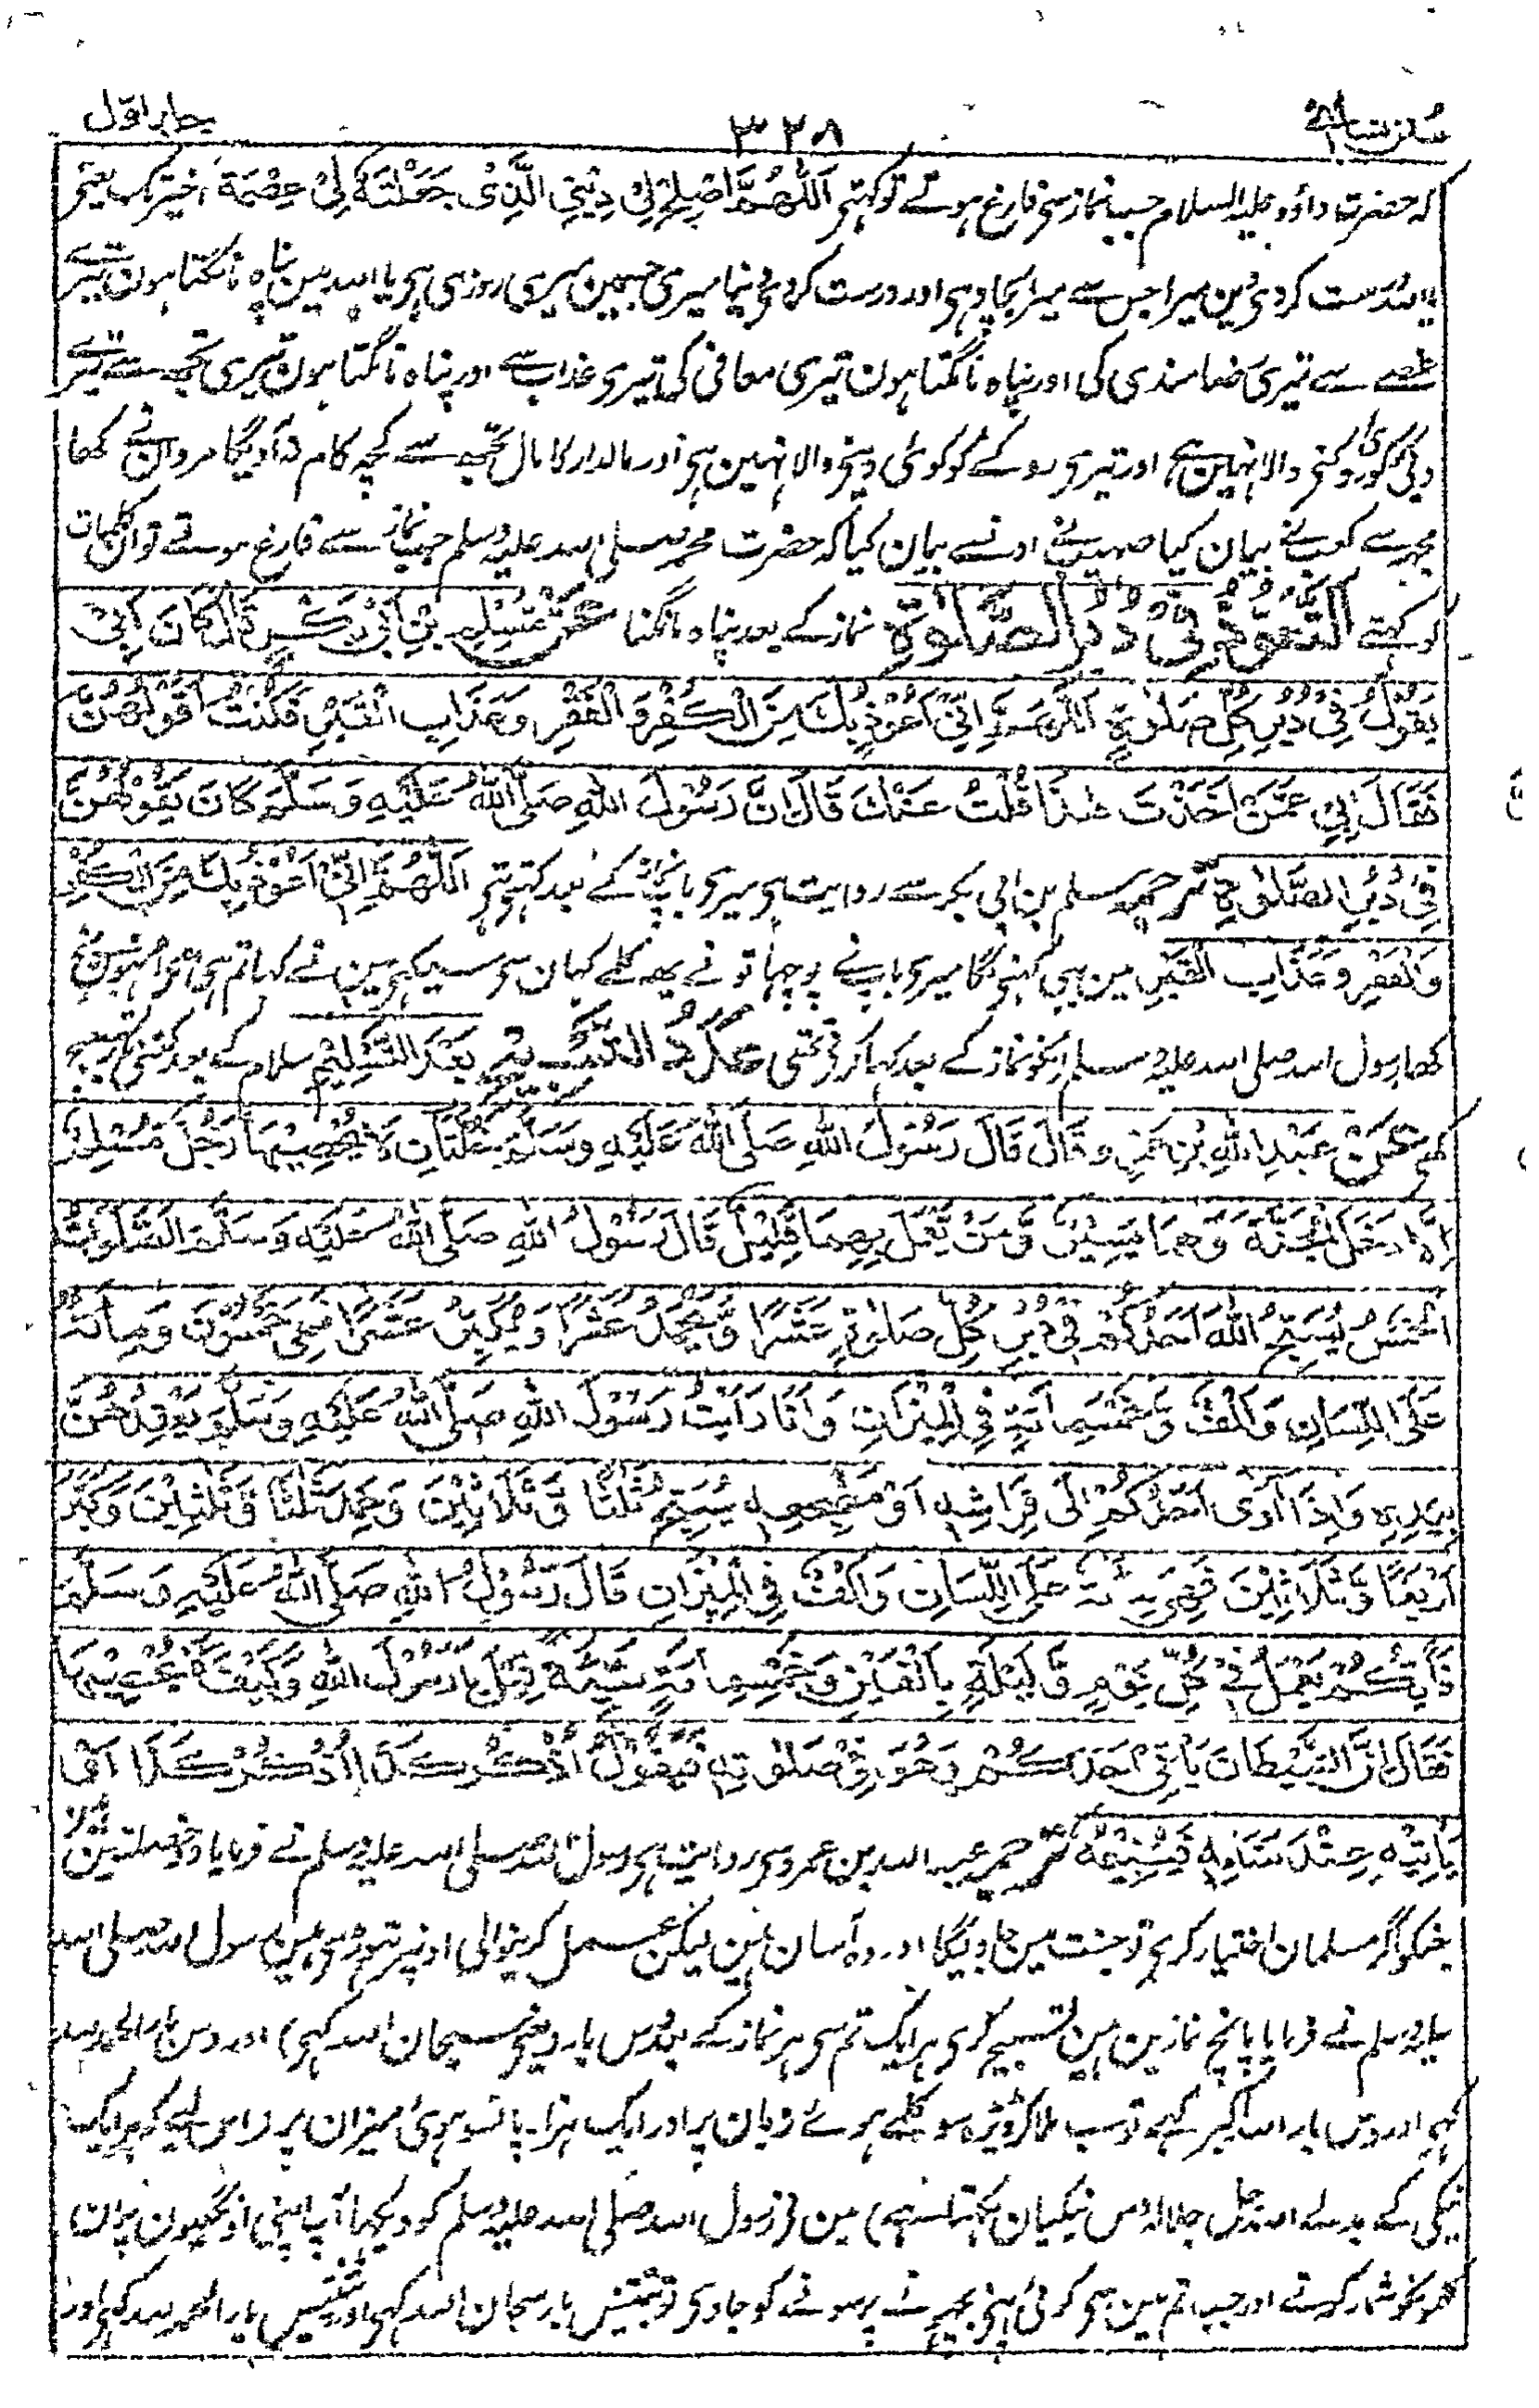 سنن نسائی ۳۲۸ جلد اول
کہ حضرت داؤد علیہ السلام جب نماز سی فارغ ہوتے تو کہتی اَللّٰھُمَّ اَصْلِحْ لِیْ دِیْنِیَ الَّذِیْ جَعَلْتَہٗ لِیْ عِصْمَةً اخیر تک یعنی
یا اللہ درست کر دی دین میرا جس سے میرا بچاو ہی اور درست کر دی دنیا میری جسمین میری روزی ہی یا اللہ مین پناہ مانگتا ہون تیرے
غصے سے تیری رضامندی کی اور پناہ مانگتا ہون تیری معافی کی تیری عذاب سے اور پناہ مانگتا ہون تیری تجھ سے تیرے
دیکو کوئی روکنی والا نہین ہے اور تیری روکے کو کوئی دینی والا نہین ہی اور مالدار کا مال تجھ سے کچہ کام نہ آویگا مروان نے کہا
مجہسے کعب نے بیان کیا صہیب نے اونسے بیان کیا کہ حضرت محمد صلی اللہ علیہ وسلم جب نماز سے فارغ ہوتے تو ان کلمات
کو کہتے اَلتَّعَوُّذُ فِیْ دُبُرِ الصَّلٰوةِ نماز کے بعد پناہ مانگنا عَنْ مُسْلِمِ بْنِ اَبِیْ بَکْرَۃَ قَالَ کَانَ اَبِیْ
یَقُوْلُ فِیْ دُبُرِ کُلِّ صَلٰوةٍ اَللّٰھُمَّ اِنِّیْ اَعُوْذُ بِكَ مِنَ الْکُفْرِ وَ الْفَقْرِ وَعَذَابِ الْقَبْرِ فَکُنْتُ اَقُوْلُھُنَّ
فَقَالَ اَبِیْ عَمَّنْ اَخَذْتَ ھٰذَا قُلْتُ عَنْكَ قَالَ اِنَّ رَسُوْلَ اللّٰہِ صَلَّی اللّٰہُ عَلَیْہِ وَسَلَّمَ کَانَ یَقُوْلُھُنَّ
فِیْ دُبُرِ الصَّلٰوةِ ترجمہ مسلم بن ابی بکر سے روایت ہی میری باپ نماز کے بعد کہتی تہی اَللّٰھُمَّ اِنِّیْ اَعُوْذُ بِكَ مِنَ الْکُفْرِ
وَالْفَقْرِ وَعَذَابِ الْقَبْرِ مین بہی کہنی لگا میری باپ نے پوچہا تو نے یہ کلے کہان سی سیکہی مین نے کہا تم سی اونہون نی
کہا رسول اللہ صلی اللہ علیہ وسلم انکو نماز کے بعد کہا کرتی تہی عَدَدُ التَّسْبِیْحِ بَعْدَ التَّسْلِیْمِ سلام کے بعد کتنی تسبیح
کہی عَنْ عَبْدِ اللّٰہِ بْنِ عَمْرٍو قَالَ قَالَ رَسُوْلُ اللّٰہِ صَلَّی اللّٰہُ عَلَیْہِ وَسَلَّمَ خَلَّتَانِ لَا یُحْصِیْھِمَا رَجُلٌ مُسْلِمٌ
اِلَّا دَخَلَ الْجَنَّةَ وَھُمَا یَسِیْرٌ وَّمَنْ یَّعْمَلُ بِھِمَا قَلِیْلٌ قَالَ رَسُوْلُ اللّٰہِ صَلَّی اللّٰہُ عَلَیْہِ وَسَلَّمَ الصَّلَوٰتُ
الْخَمْسُ یُسَبِّحُ اللّٰہَ اَحَدُکُمْ فِیْ دُبُرِ کُلِّ صَلٰوةٍ عَشْرًا وَّیَحْمَدُ عَشْرًا وَّیُکَبِّرُ عَشْرًا فَھِیَ خَمْسُوْنَ وَمِائَةٌ
عَلَی اللِّسَانِ وَاَلْفٌ وَّخَمْسُمِائَةٍ فِی الْمِیْزَانِ وَاَنَا رَاَیْتُ رَسُوْلَ اللّٰہِ صَلَّی اللّٰہُ عَلَیْہِ وَسَلَّمَ یَعْقِدُھُنَّ
بِیَدِہٖ وَاِذَا اَوٰی اَحَدُکُمْ اِلٰی فِرَاشِہٖ اَوْ مَضْجَعِہٖ یُسَبِّحُ ثَلٰثًا وَّثَلَاثِیْنَ وَحَمِدَ ثَلٰثًا وَّثَلٰثِیْنَ وَکَبَّرَ
اَرْبَعًا وَّثَلَاثِیْنَ فَھِیَ مِائَةٌ عَلَی اللِّسَانِ وَاَلْفٌ فِی الْمِیْزَانِ قَالَ رَسُوْلُ اللّٰہِ صَلَّی اللّٰہُ عَلَیْہِ وَسَلَّمَ
فَاَیُّکُمْ یَعْمَلُ فِیْ کُلِّ یَوْمٍ وَّلَیْلَةٍ بِاَلْفَیْنِ وَخَمْسِمِائَةٍ سَیِّئَةٍ قِیْلَ یَا رَسُوْلَ اللّٰہِ وَکَیْفَ لَا نُحْصِیْھَا
فَقَالَ اِنَّ الشَّیْطَانَ یَاْتِیْ اَحَدَکُمْ وَھُوَ فِیْ صَلٰوتِہٖ فَیَقُوْلُ اُذْکُرْ کَذَا اُذْکُرْ کَذَا اَوْ
یَاْتِیْہِ عِنْدَ مَنَامِہٖ فَیُنِیْمُہٗ ترجمہ عبد اللہ بن عمرو سی روایت ہی رسول اللہ صلی اللہ علیہ وسلم نے فرمایا دو خصلتین ہین
جنکو اگر مسلمان اختیار کری تو جنت مین جاویگا اور وہ آسان ہین لیکن عمل کرنیوالی اونپر تہوڑی ہین رسول اللہ صلی اللہ
علیہ وسلم نے فرمایا پانچ نمازین ہین تسبیح کری ہر ایک تم سی ہر نماز کے بعد دس بار (یعنی سبحان اللہ کہی) اور دس بار الحمد للہ
کہی اور دس بار اللہ اکبر کہے تو سب ملا کر ڈیڑہ سو کلمے ہوئے زبان پر اور ایک ہزار پانسو ہوئی میزان پر (اس لیے کہ ہر ایک
نیکی کے بدلے اللہ جل جلالہ دس نیکیان لکہتا ہے) مین نی رسول اللہ صلی اللہ علیہ وسلم کو دیکہا آپ اپنی اونگلیون پر ان
کلمونکو شمار کرتے اور جب تم مین سی کوئی اپنی بچہونے پر سونے کو جاوی تو تینتیس بار سبحان اللہ کہی اور تینتیس بار الحمد للہ کہی اور